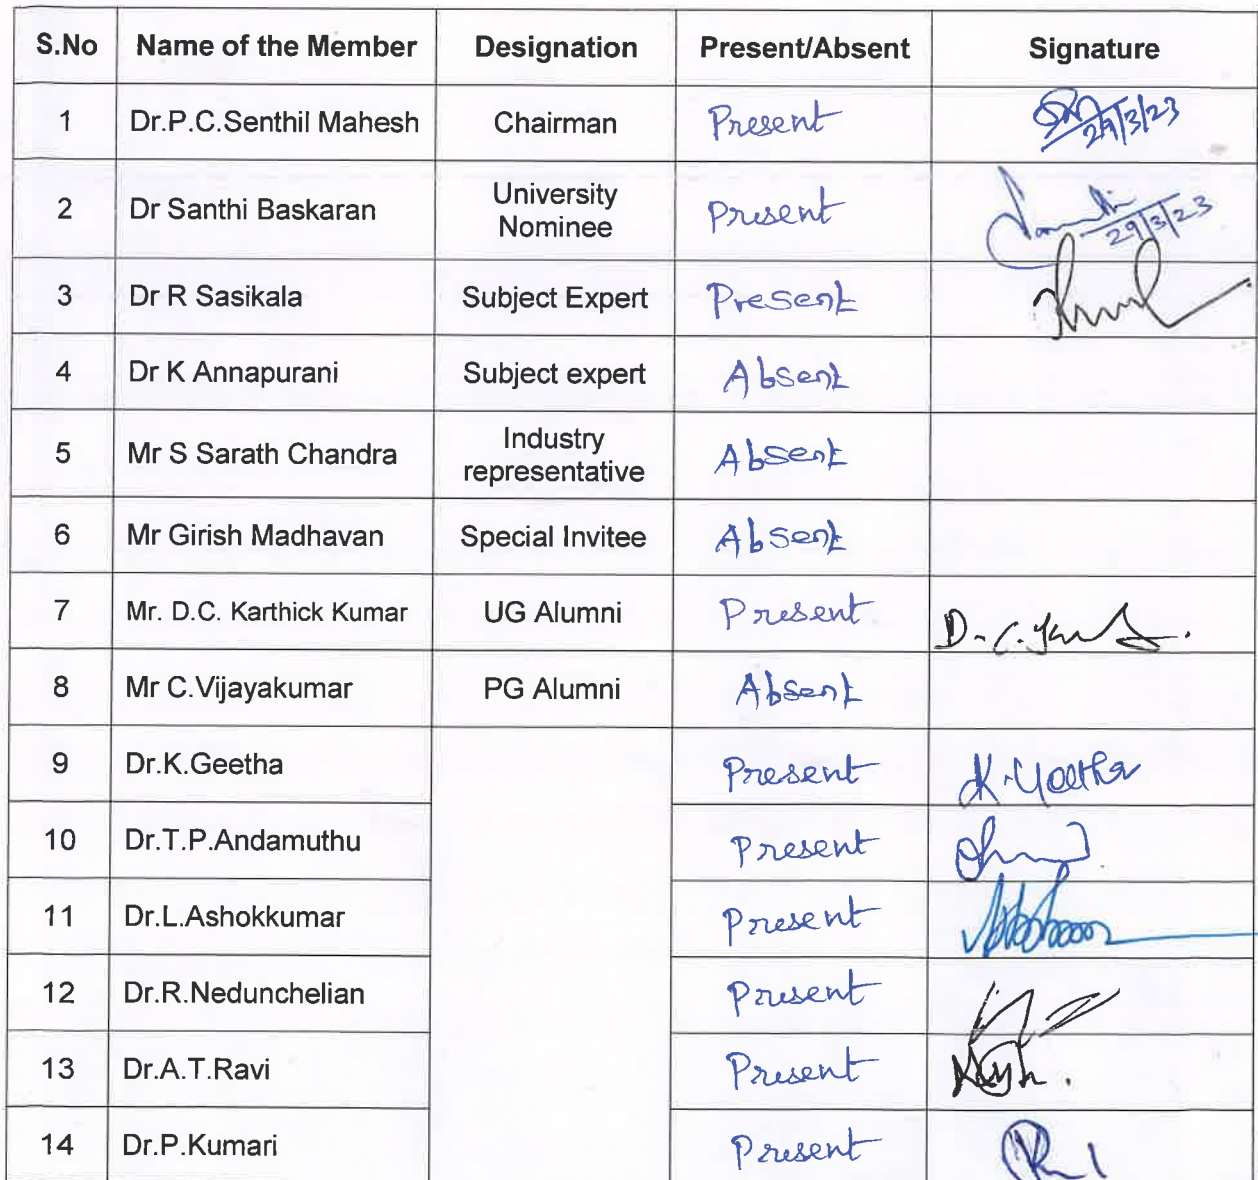 S.No Name of the Member Designation Present/Absent Signature
1 Dr.P.C.Senthil Mahesh Chairman Present 29/3/23
2 Dr Santhi Baskaran University Nominee Present 29/3/23
3 Dr R Sasikala Subject Expert Present
4 Dr K Annapurani Subject expert Absent
5 Mr S Sarath Chandra Industry representative Absent
6 Mr Girish Madhavan Special Invitee Absent
7 Mr. D.C. Karthick Kumar UG Alumni Present D.C.
8 Mr C.Vijayakumar PG Alumni Absent
9 Dr.K.Geetha Present K.Geetha
10 Dr.T.P.Andamuthu Present
11 Dr.L.Ashokkumar Present
12 Dr.R.Nedunchelian Present
13 Dr.A.T.Ravi Present
14 Dr.P.Kumari Present